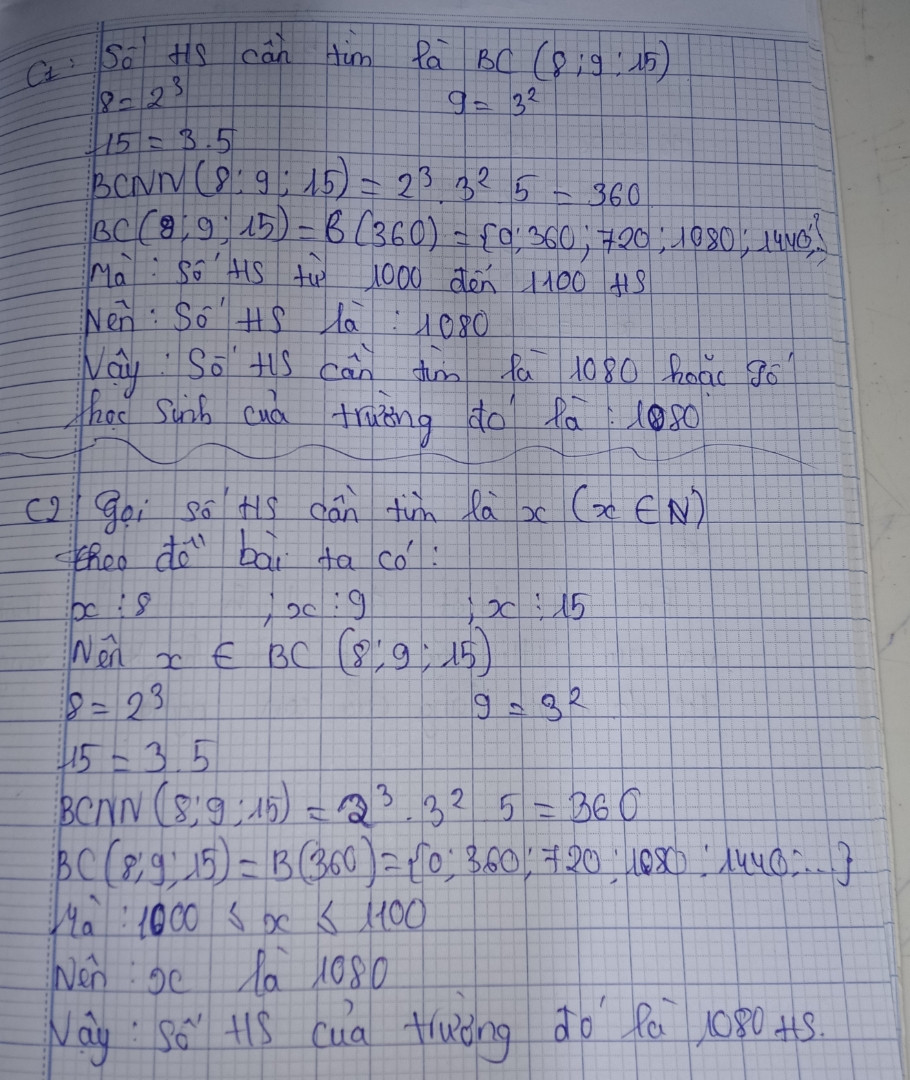 C1: Số HS cần tìm là BC (8;9;15)
8 = 2³ 9 = 3²
15 = 3.5
BCNN (8;9;15) = 2³.3² 5 = 360
BC (8;9;15) = B (360) = {0;360;720;1080;1440;}
Mà: Số HS từ 1000 đến 1100 HS
Nên: Số HS là: 1080
Vậy: Số HS cần tìm là 1080 hoặc số
học sinh của trường đó là: 1080
C2 Gọi số HS cần tìm là x (x ∈ N)
theo đề bài ta có:
x ⋮ 8 ; x ⋮ 9 ; x ⋮ 15
Nên x ∈ BC (8;9;15)
8 = 2³ 9 = 3²
15 = 3.5
BCNN (8;9;15) = 2³.3² 5 = 360
BC (8;9;15) = B(360) = {0;360;720;1080;1440;...}
Mà: 1000 ≤ x ≤ 1100
Nên: x là 1080
Vậy: Số HS của trường đó là 1080 HS.